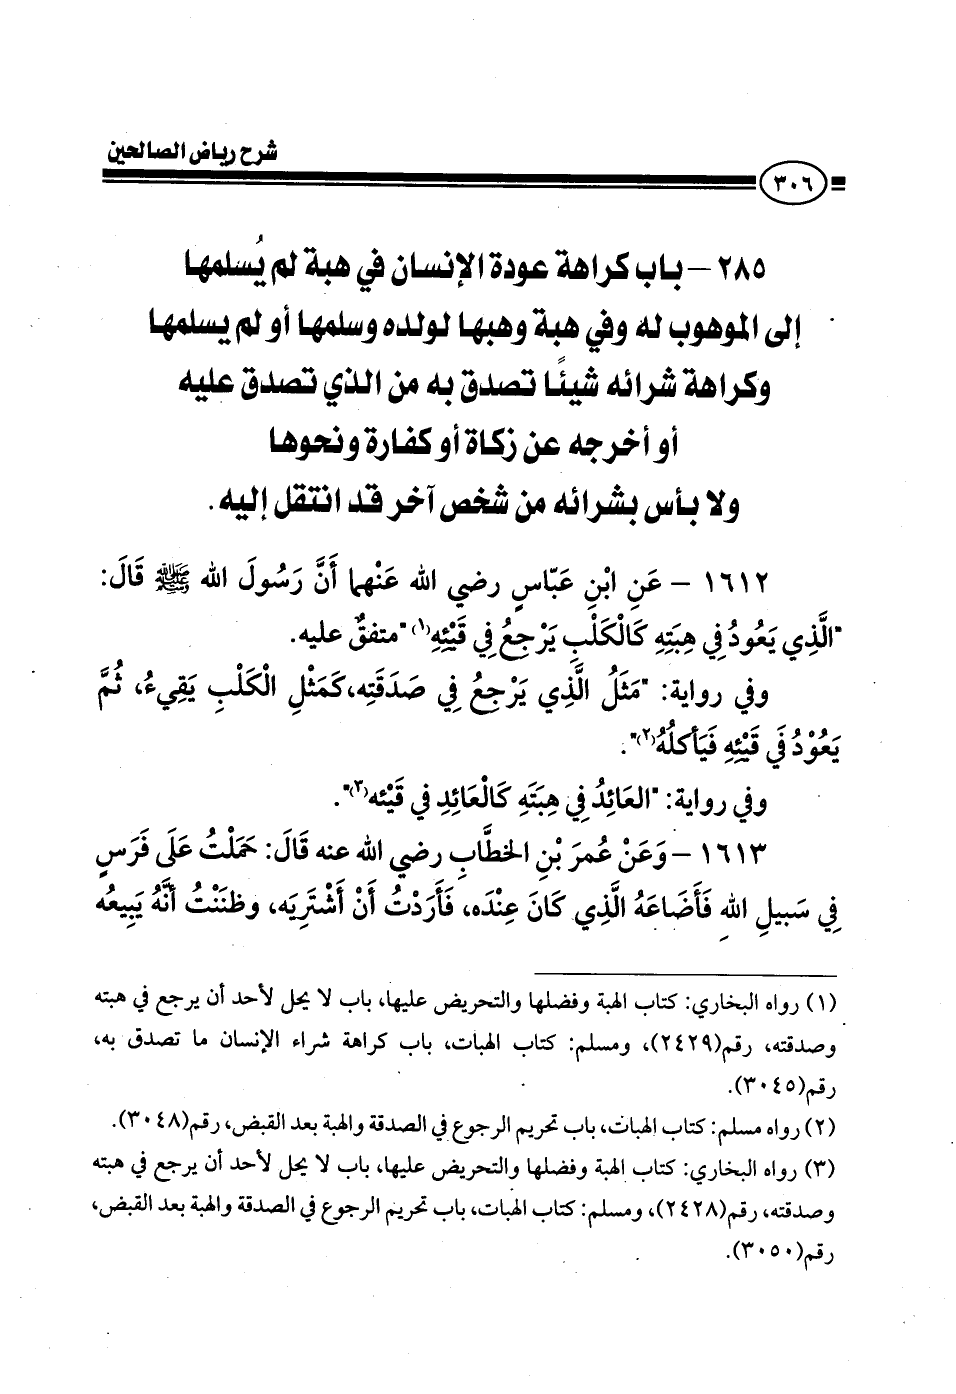 شرح رياض الصالحين
٣٠٦
٢٨٥ – باب كراهة عودة الإنسان في هبة لم يُسلمها
إلى الموهوب له وفي هبة وهبها لولده وسلمها أو لم يسلمها
وكراهة شرائه شيئًا تصدق به من الذي تصدق عليه
أو أخرجه عن زكاة أو كفارة ونحوها
ولا بأس بشرائه من شخص آخر قد انتقل إليه.
١٦١٢ – عَنِ ابْنِ عَبّاسٍ رضي الله عَنْهما أَنَّ رَسُولَ الله ﷺ قَالَ:
"الَّذِي يَعُودُ فِي هِبَتِهِ كَالْكَلْبِ يَرْجِعُ فِي قَيْئِهِ(١)" متفقٌ عليه.
وفي رواية: "مَثَلُ الَّذِي يَرْجِعُ فِي صَدَقَتِه، كَمَثْلِ الْكَلْبِ يَقِيءُ، ثُمَّ
يَعُوْدُ فَي قَيْئِهِ فَيَأكلُهُ(٢)".
وفي رواية: "العَائِدُ فِي هِبَتِهِ كَالْعَائِدِ فِي قَيْئه(٣)".
١٦١٣ – وَعَنْ عُمرَ بْنِ الخطَّابِ رضي الله عنه قَالَ: حَمَلْتُ عَلَى فَرَسٍ
فِي سَبِيلِ اللهِ فَأَضَاعَهُ الَّذِي كَانَ عِنْدَه، فَأَرَدْتُ أَنْ أَشْتَرِيَه، وظنَنْتُ أنَّهُ يَبِيعُه
(١) رواه البخاري: كتاب الهبة وفضلها والتحريض عليها، باب لا يحل لأحد أن يرجع في هبته
وصدقته، رقم(٢٤٢٩)، ومسلم: كتاب الهبات، باب كراهة شراء الإنسان ما تصدق به،
رقم(٣٠٤٥).
(٢) رواه مسلم: كتاب الهبات، باب تحريم الرجوع في الصدقة والهبة بعد القبض، رقم(٣٠٤٨).
(٣) رواه البخاري: كتاب الهبة وفضلها والتحريض عليها، باب لا يحل لأحد أن يرجع في هبته
وصدقته، رقم(٢٤٢٨)، ومسلم: كتاب الهبات، باب تحريم الرجوع في الصدقة والهبة بعد القبض،
رقم(٣٠٥٠).